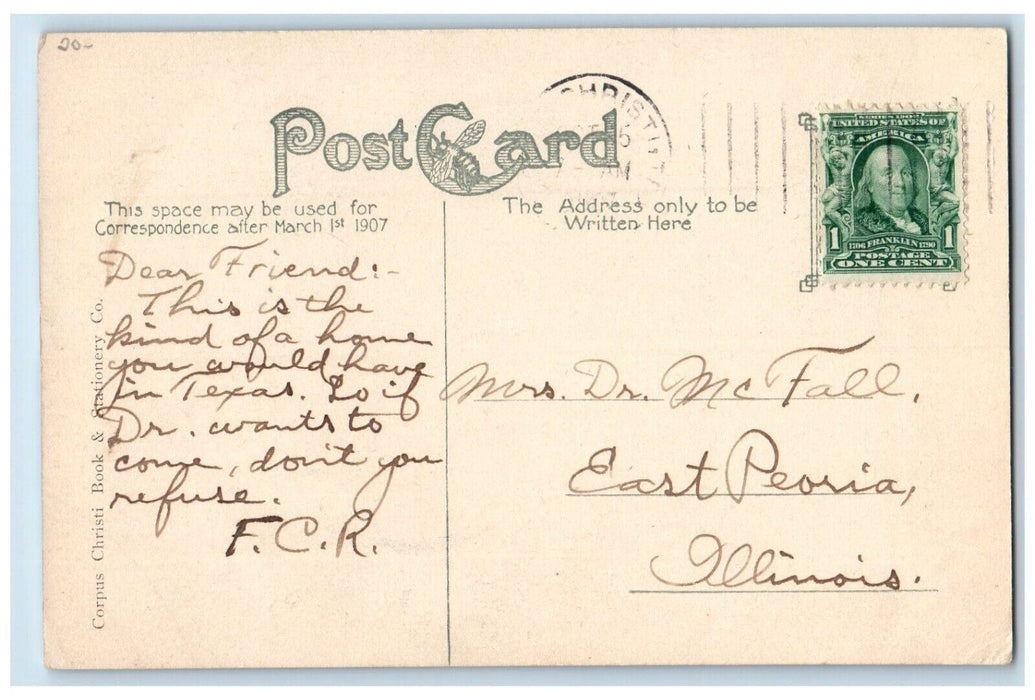 20-
Post Card
CHRISTI
5
AM
SERIES 1902
UNITED STATES OF
AMERICA
1 1706 FRANKLIN 1790 1
POSTAGE
ONE CENT
This space may be used for
Correspondence after March 1st 1907
The Address only to be
Written Here
Dear Friend:-
This is the
kind of a home
you would have
in Texas. So if
Dr. wants to
come, don't you
refuse.
F.C.R.
Mrs. Dr. Mc Fall,
East Peoria,
Illinois.
Corpus Christi Book & Stationery Co.